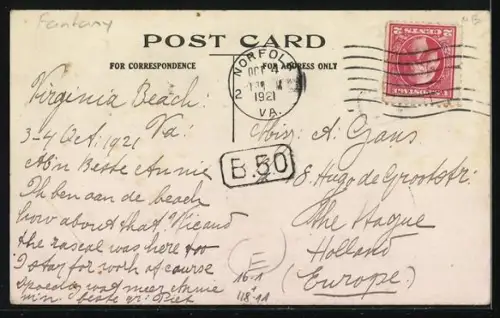 Fantasy
POST CARD
FOR CORRESPONDENCE
FOR ADDRESS ONLY
NORFOLK
OCT 4
1921
VA.
2
Virginia Beach:
3-4 Oct. 1921 Va:
Mijn Beste Annie
Ik ben aan de beach
how about that. Wicand
the rascal was here too
I stay for work of course
Spoedig wat meer Annie
min. beste gr: Piet
B.50
Miss A: Gans
18. Hugo de Grootstr.
The Hague
Holland
(Europe)
E